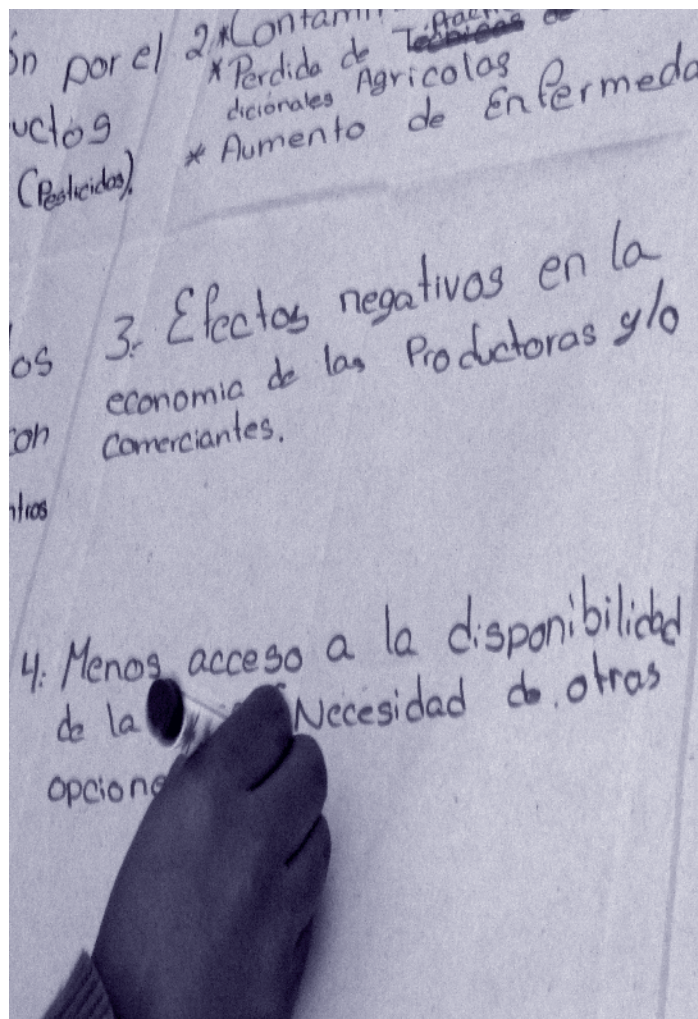 ón por el
uctos
(Pesticidas).
os
con
ntros
2 * Contami
* Perdida de Tecnicas de
Practi
dicionales Agricolas
* Aumento de Enfermeda
3. Efectos negativos en la
economia de las Productoras y/o
comerciantes.
4. Menos acceso a la disponibilidad
de la Necesidad de otras
opcione